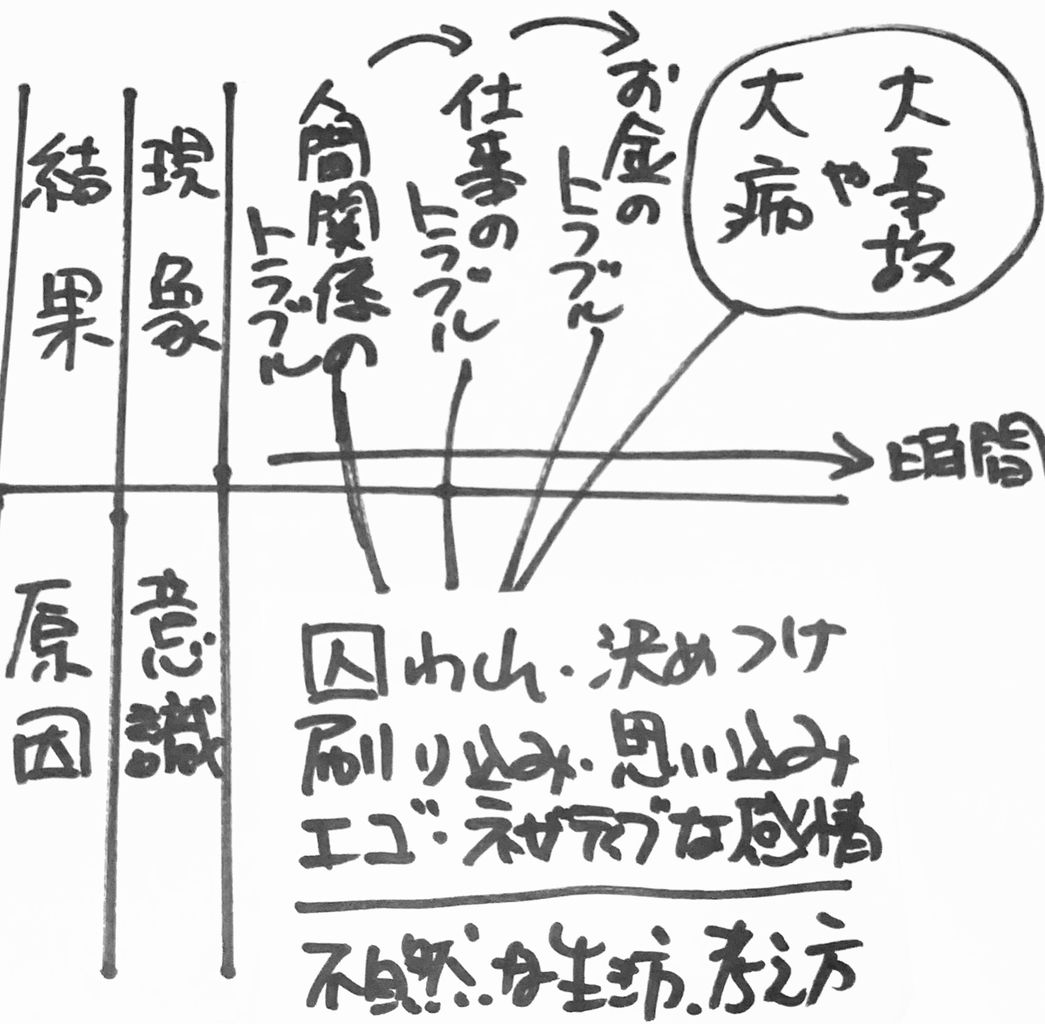 結果
現象
人間関係の
トラブル
仕事の
トラブル
お金の
トラブル
大事故
や
大病
時間
原因
意識
囚われ・決めつけ
刷り込み・思い込み
エゴ・ネガティブな感情
不自然な生活・考え方